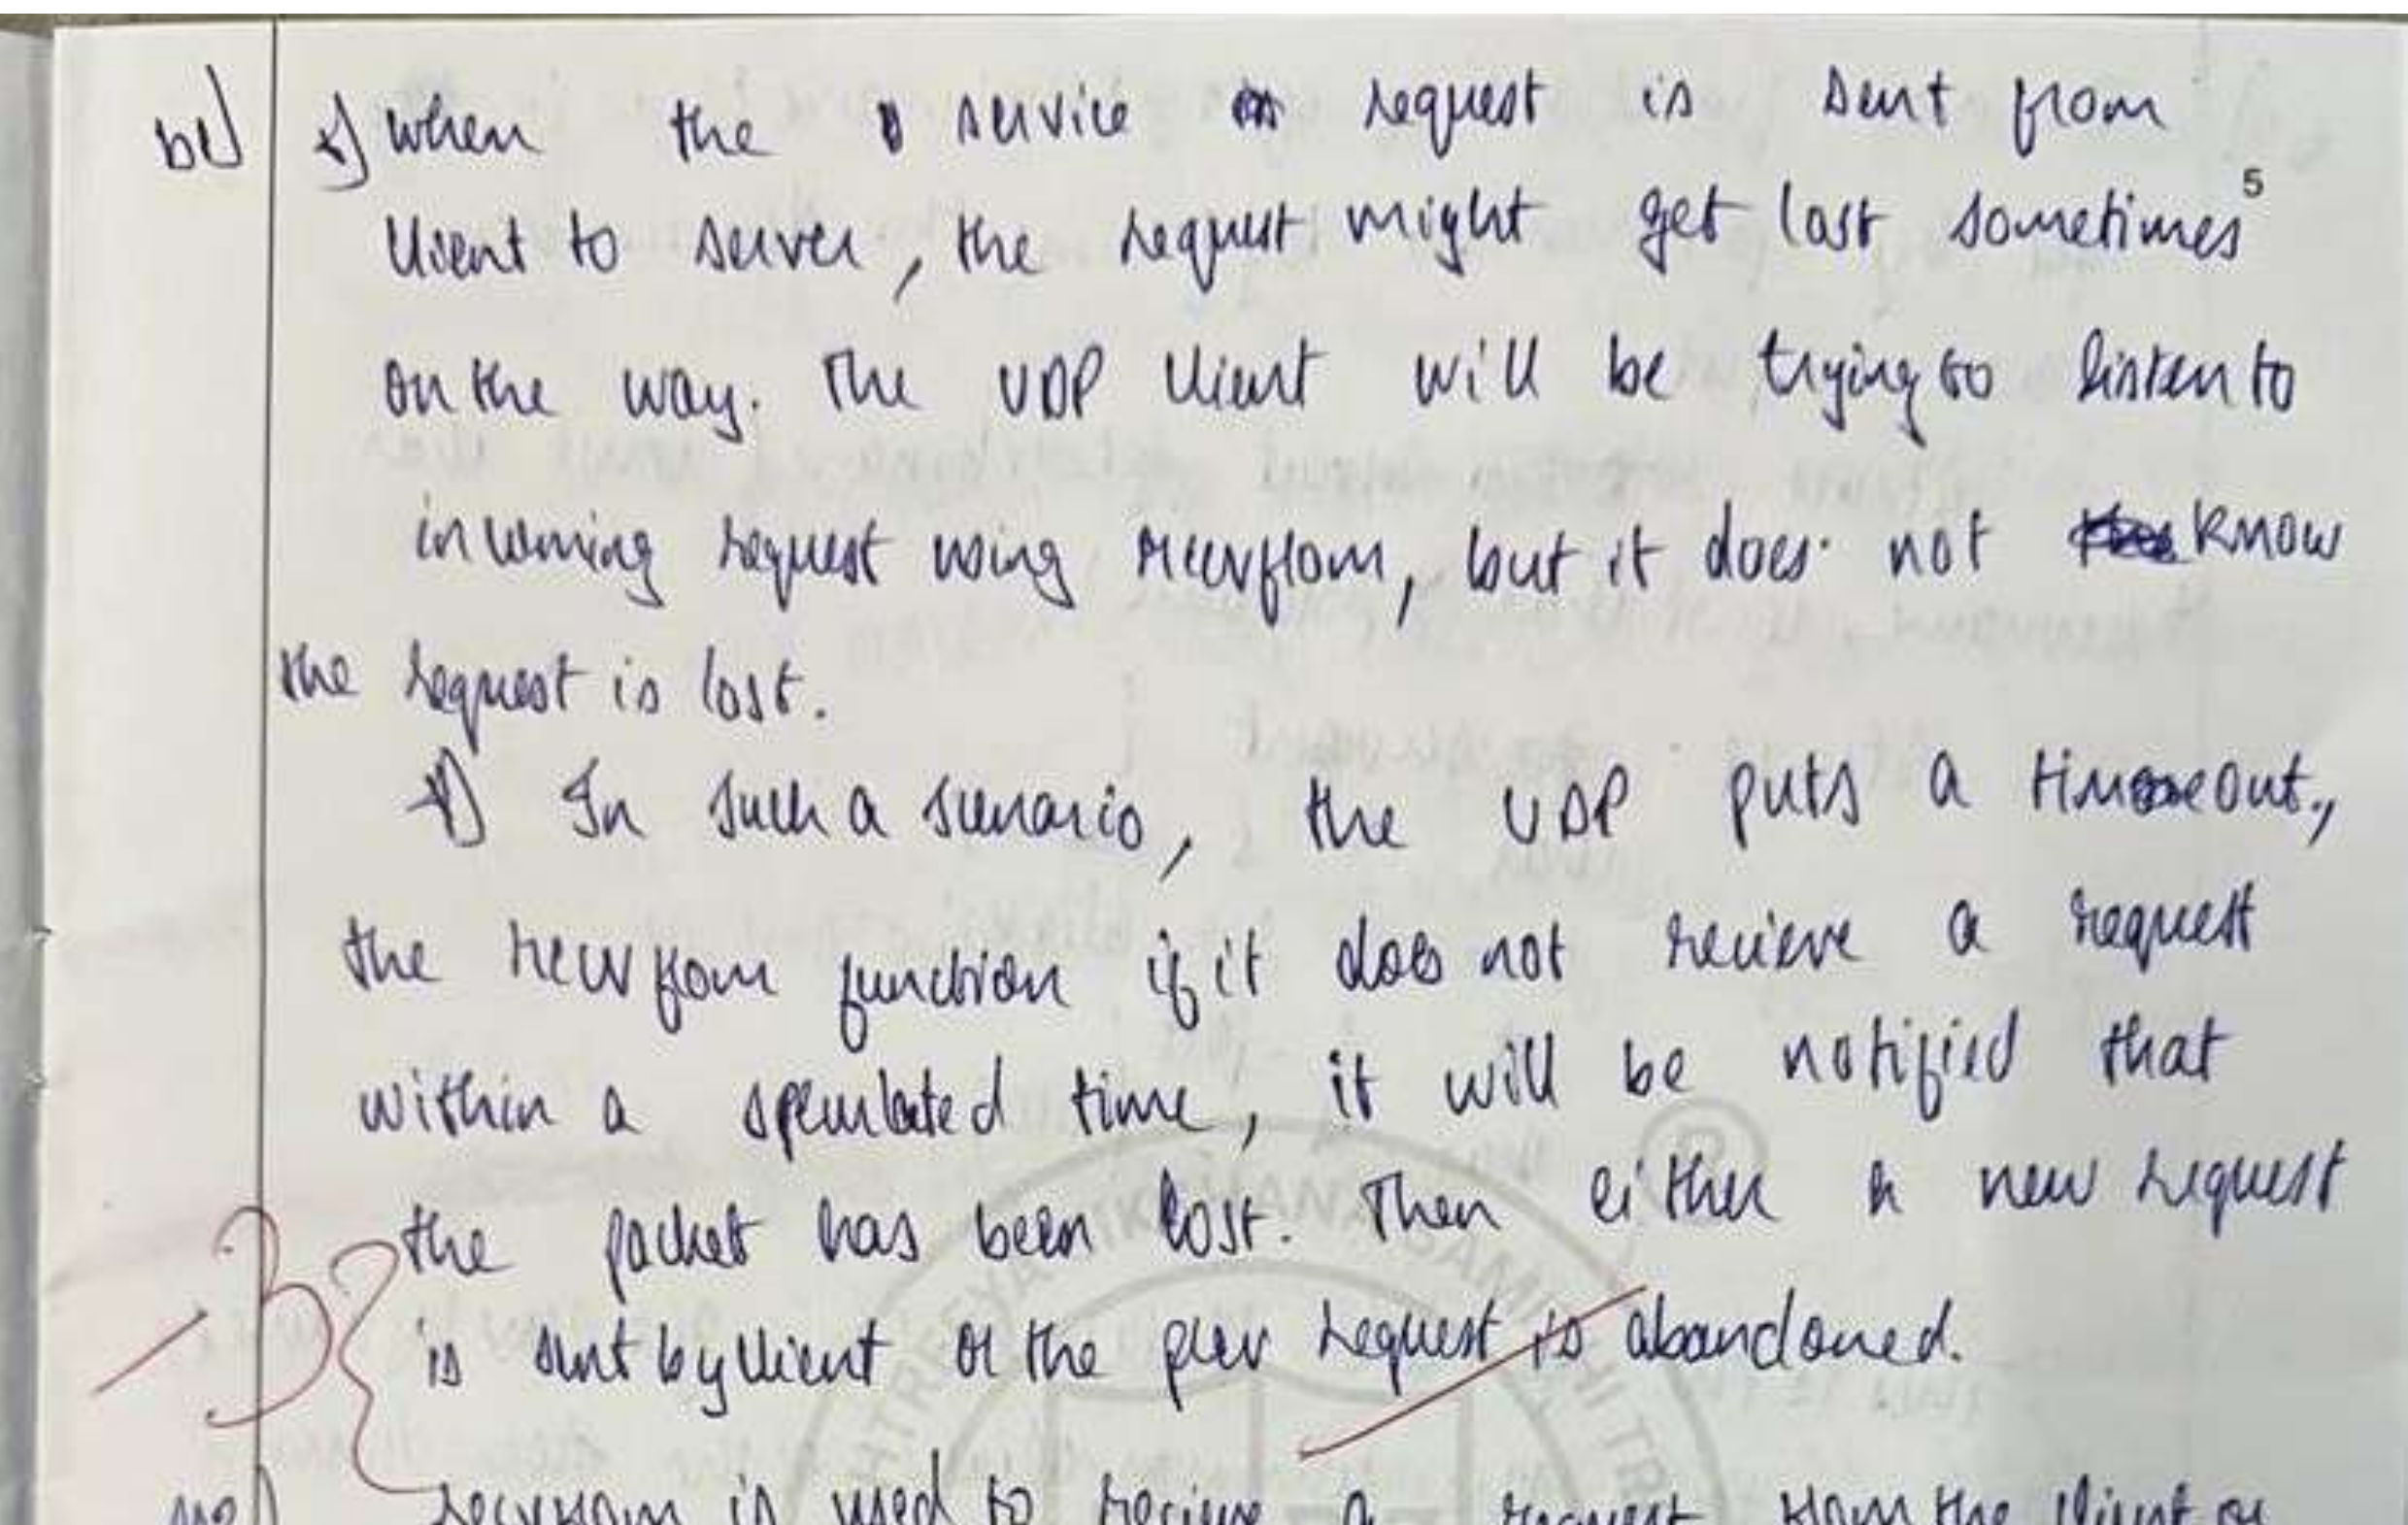 b) *) When the service request is sent from
5
client to server, the request might get lost sometimes
on the way. The UDP client will be trying to listen to
incoming request using recvfrom, but it does not know
the request is lost.
*) In such a scenario, the UDP puts a timeout,
the recvfrom function if it does not recieve a request
within a time, it will be notified that
the packet has been lost. Then either a new request
is sent by client or the prev request is abandoned.
3
recvfrom is used to recieve a request from the client or